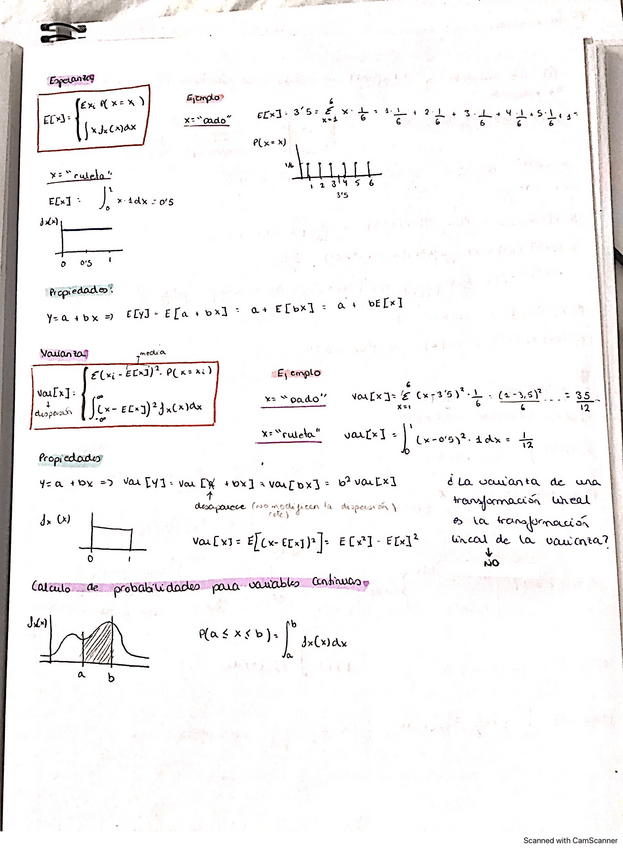 Esperanza
E[x] = { Σxi P(x = x)
∫ x fx(x)dx
Ejemplo
x = "dado"
E[x] = 3'5 = Σ x · 1/6 = 1 · 1/6 + 2 · 1/6 + 3 · 1/6 + 4 1/6 + 5 · 1/6 +
x=1 6
P(x = x)
1/6
1 2 3 4 5 6
3'5
x = "ruleta"
E[x] = ∫ x · 1 dx = 0'5
fx(x)
0 0'5 1
Propiedades:
Y = a + bx => E[Y] = E[a + bx] = a + E[bx] = a + bE[x]
Varianza
media
Var[x] = { Σ(xi - E[x])² · P(x = xi)
∫ (x - E[x])² fx(x)dx
dispersión
Ejemplo
x = "dado"
Var[x] = Σ (x - 3'5)² · 1/6 = (1 - 3,5)²/6 ... = 35/12
x=1 6
x = "ruleta"
Var[x] = ∫₀¹ (x - 0'5)² · 1 dx = 1/12
Propiedades
Y = a + bx => Var[Y] = Var[a + bx] = Var[bx] = b² Var[x]
desaparece (no modifican la dispersión)
(cte)
¿La varianza de una
transformación lineal
es la transformación
lineal de la varianza?
NO
fx(x)
0 1
Var[x] = E[(x - E[x])²] = E[x²] - E[x]²
Calculo de probabilidades para variables continuas
fx(x)
a b
P(a ≤ x ≤ b) = ∫ₐᵇ fx(x)dx
Scanned with CamScanner